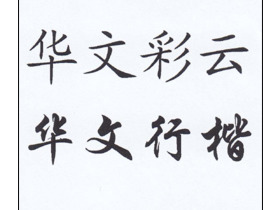 华文彩云
华文行楷